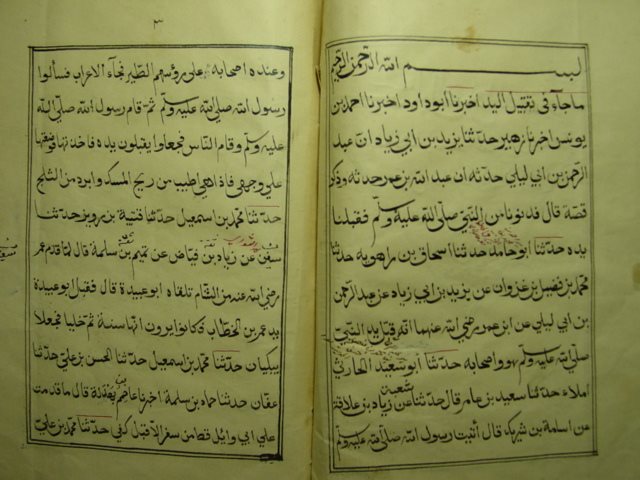 بسم الله الرحمن الرحيم
ما جاء في تقبيل اليد اخبرنا ابو داود اخبرنا احمد بن
يونس اخبرنا زهير حدثنا يزيد بن ابي زياد ان عبد
الرحمن بن ابي ليلي حدثه ان عبد الله بن عمر حدثه وذكر
قصة قال فدنونا من النبي صلى الله عليه وسلم فقبلنا
يده حدثنا ابو حامد حدثنا اسحاق بن راهويه حدثنا
محمد بن فضيل بن غزوان عن يزيد بن ابي زياد عن عبد الرحمن
بن ابي ليلي عن ابن عمر رضي الله عنهما انه قبل يد النبي
صلى الله عليه وسلم هو واصحابه حدثنا ابو سعيد الحارثي
املاء حدثنا سعيد بن عامر قال حدثنا شعبة عن زياد بن علاقة
عن اسامة بن شريك قال أتيت رسول الله صلى الله عليه وسلم
٣
وعنده اصحابه على رؤسهم الطير فجآء الاعراب فسألوا
رسول الله صلى الله عليه وسلم ثم قام رسول الله صلى الله
عليه وسلم وقام الناس فجعلوا يقبلون يده فاخذنها فوضعتها
علي وجهي فاذا هي اطيب من ريح المسك وابرد من الثلج
حدثنا محمد بن اسمعيل حدثنا قتيبة بن حدثنا
سفين عن زياد بن فياض عن تميم بن سلمة قال لما قدم عمر
رضي الله عنه من الشام تلقاه ابو عبيدة قال فقبل ابو عبيدة
يد عمر بن الخطاب وكانوا يرون انها سنة ثم خليا فجعلا
يبكيان حدثنا محمد بن اسمعيل حدثنا الحسن بن علي حدثنا
عفان حدثنا حماد بن سلمة اخبرنا عاصم بن بهدلة قال ما قدمت
علي ابي وائل قط من سفر الا قبل كفي حدثنا محمد بن علي